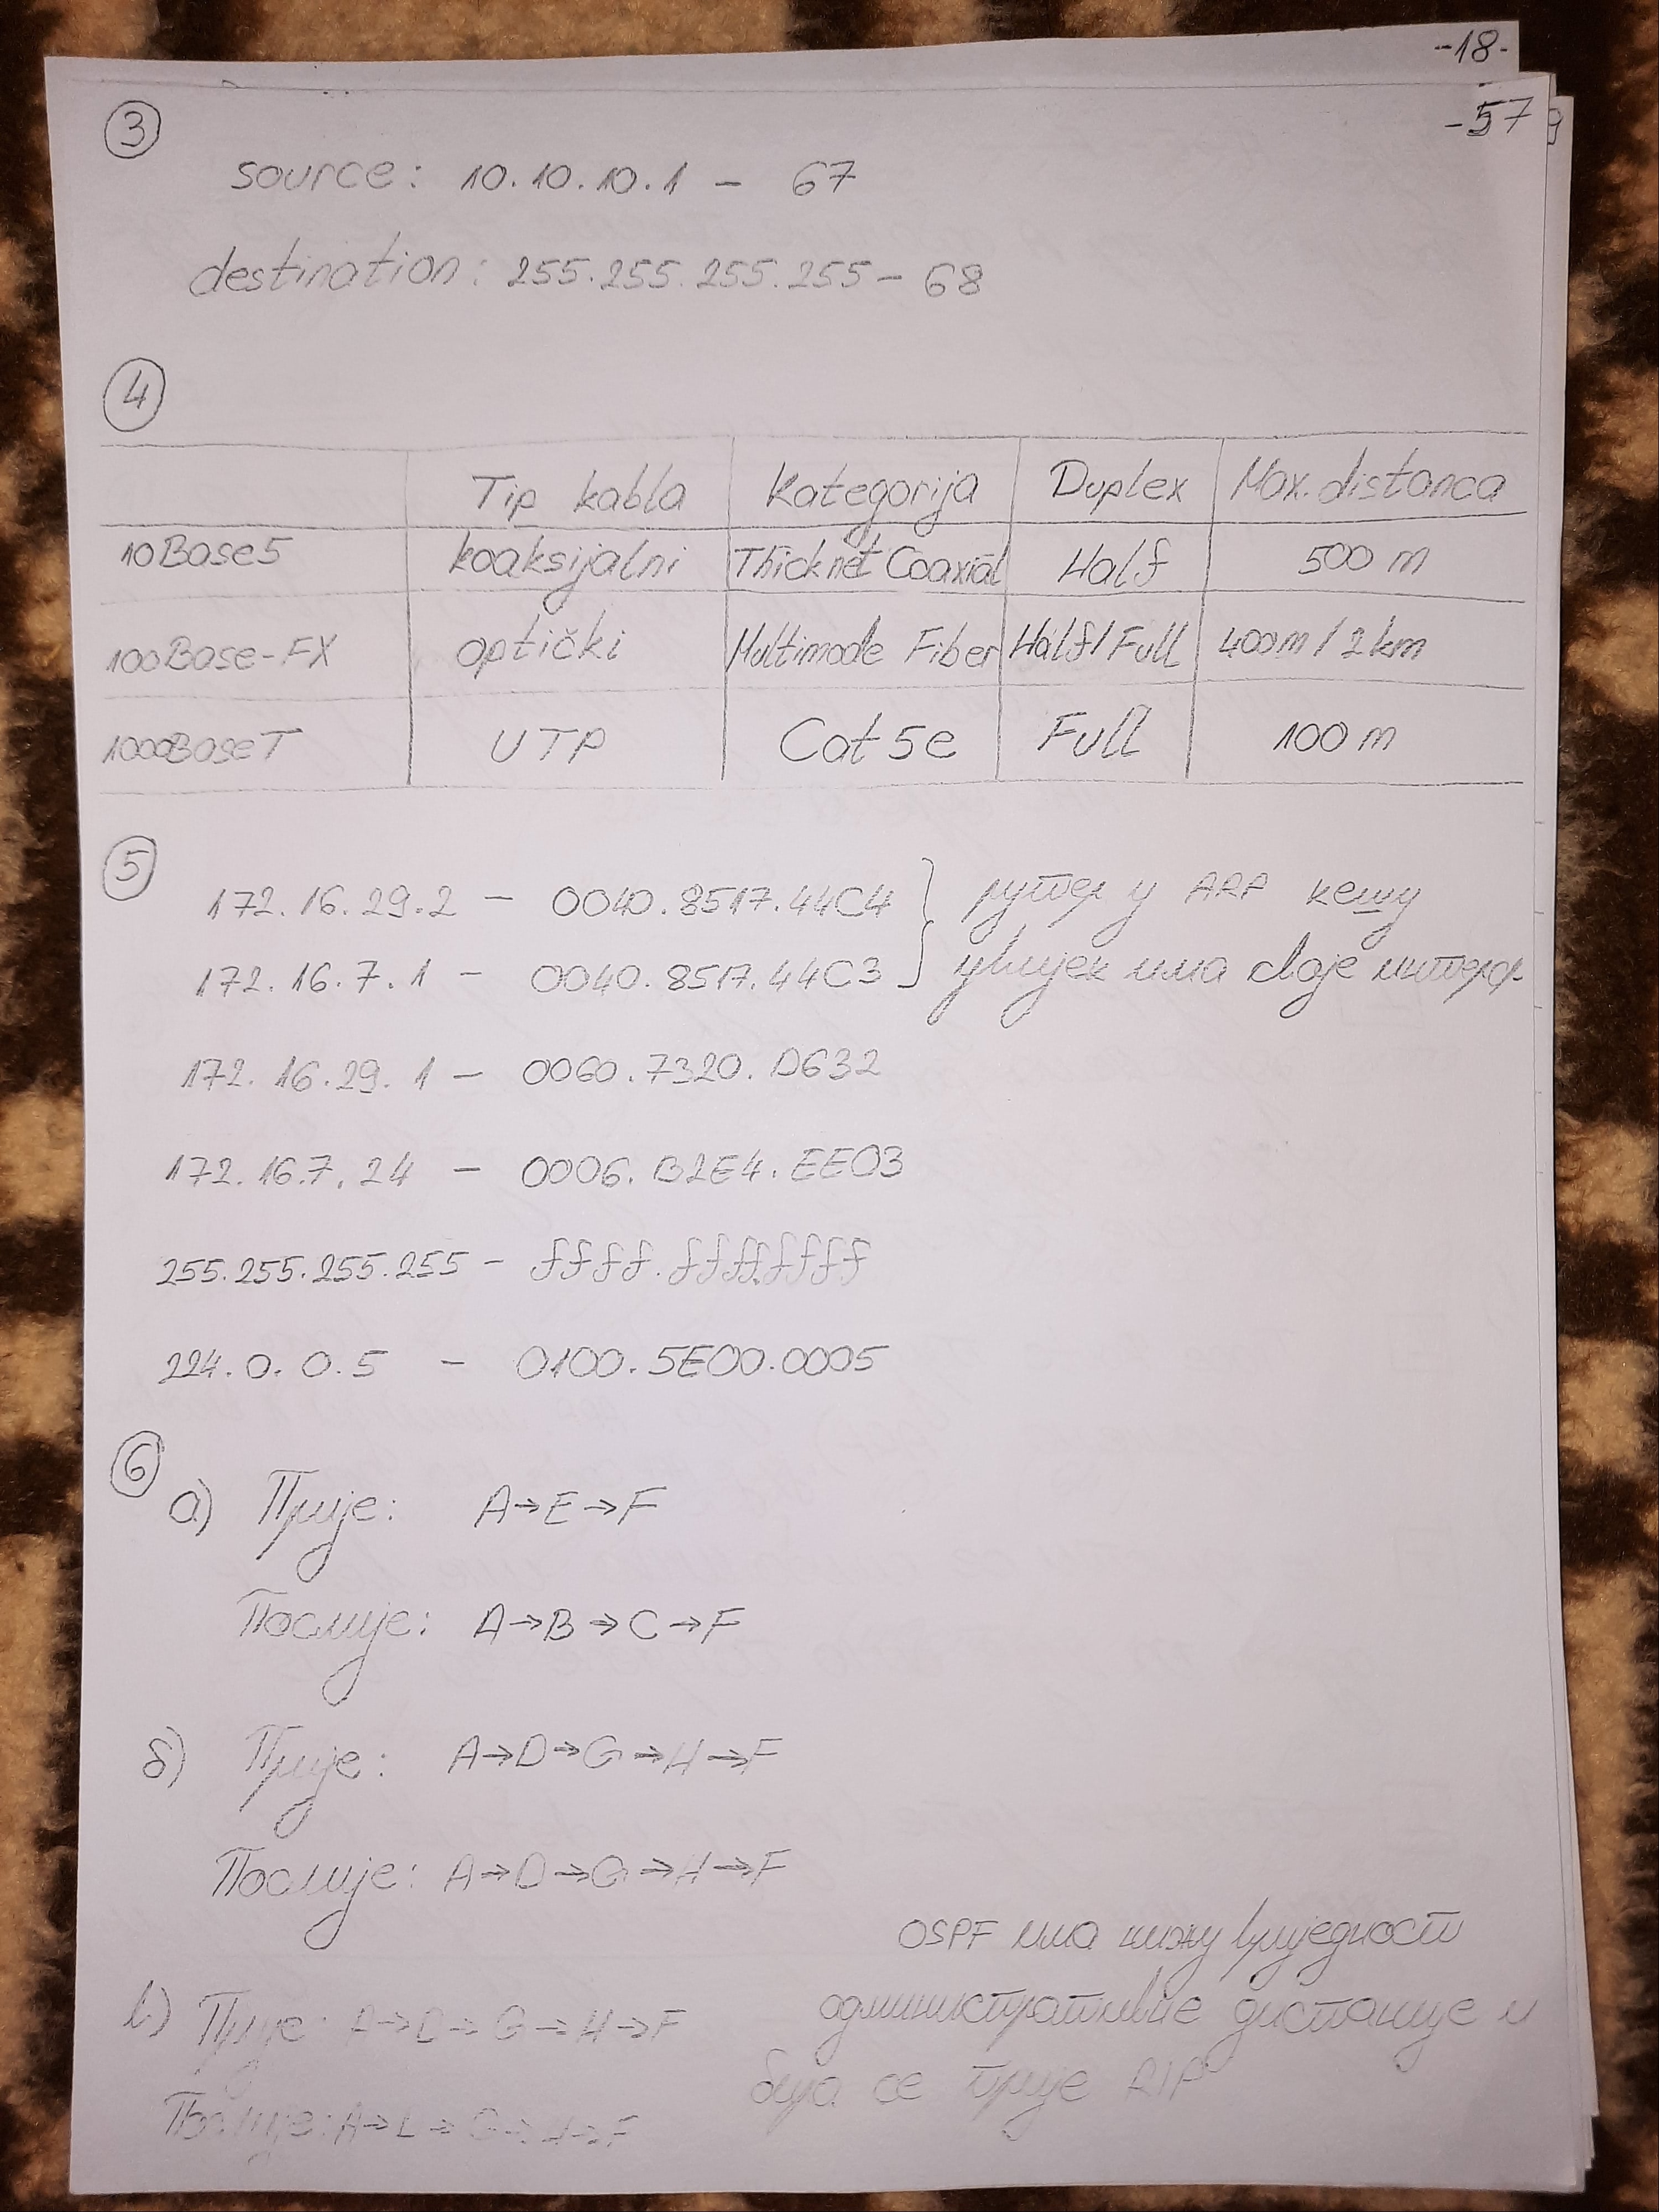 -18-
-57
9
3
source: 10.10.10.1 - 67
destination: 255.255.255.255 - 68
4
Tip kabla Kategorija Duplex Max. distanca
10Base5 koaksijalni Thicknet Coaxial Half 500 m
100Base-FX optički Multimode Fiber Half/Full 400m / 2km
1000BaseT UTP Cat 5e Full 100 m
5
172.16.29.2 - 0040.8517.44C4 } рутер у ARP кешу
172.16.7.1 - 0040.8517.44C3 увијек има своје интерф.
172.16.29.1 - 0060.7320.D632
172.16.7.24 - 0006.B2E4.EE03
255.255.255.255 - ffff.ffff.ffff
224.0.0.5 - 0100.5E00.0005
6
а) Прије: A→E→F
Послије: A→B→C→F
б) Прије: A→D→G→H→F
Послије: A→D→G→H→F
OSPF има нижу вриједност
в) Прије: A→D→G→H→F административне дистанце и
бира се прије RIP
Послије: A→ →G→H→F